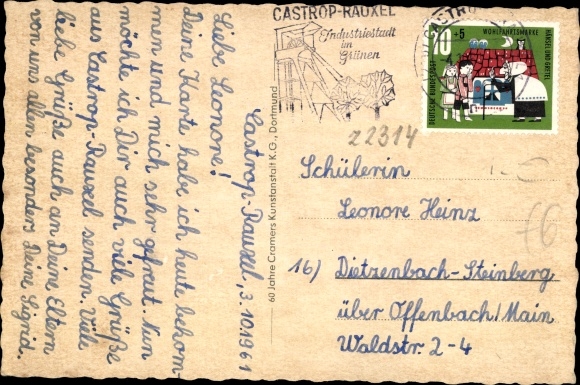 Castrop-Rauxel, 3.10.1961
Liebe Leonore!
Deine Karte habe ich heute bekom-
men und mich sehr gefreut. Nun
möchte ich Dir auch viele Grüße
aus Castrop-Rauxel senden. Viele
liebe Grüße auch an Deine Eltern
von uns allen besonders Deine Sigrid.
60 Jahre Cramers Kunstanstalt K.G., Dortmund
CASTROP-RAUXEL
Industriestadt
im
Grünen
CASTROP
20+5
WOHLFAHRTSMARKE
HÄNSEL UND GRETEL
DEUTSCHE BUNDESPOST
22314
Schülerin
Leonore Heinz
16) Dietzenbach-Steinberg
über Offenbach/Main
Waldstr. 2-4